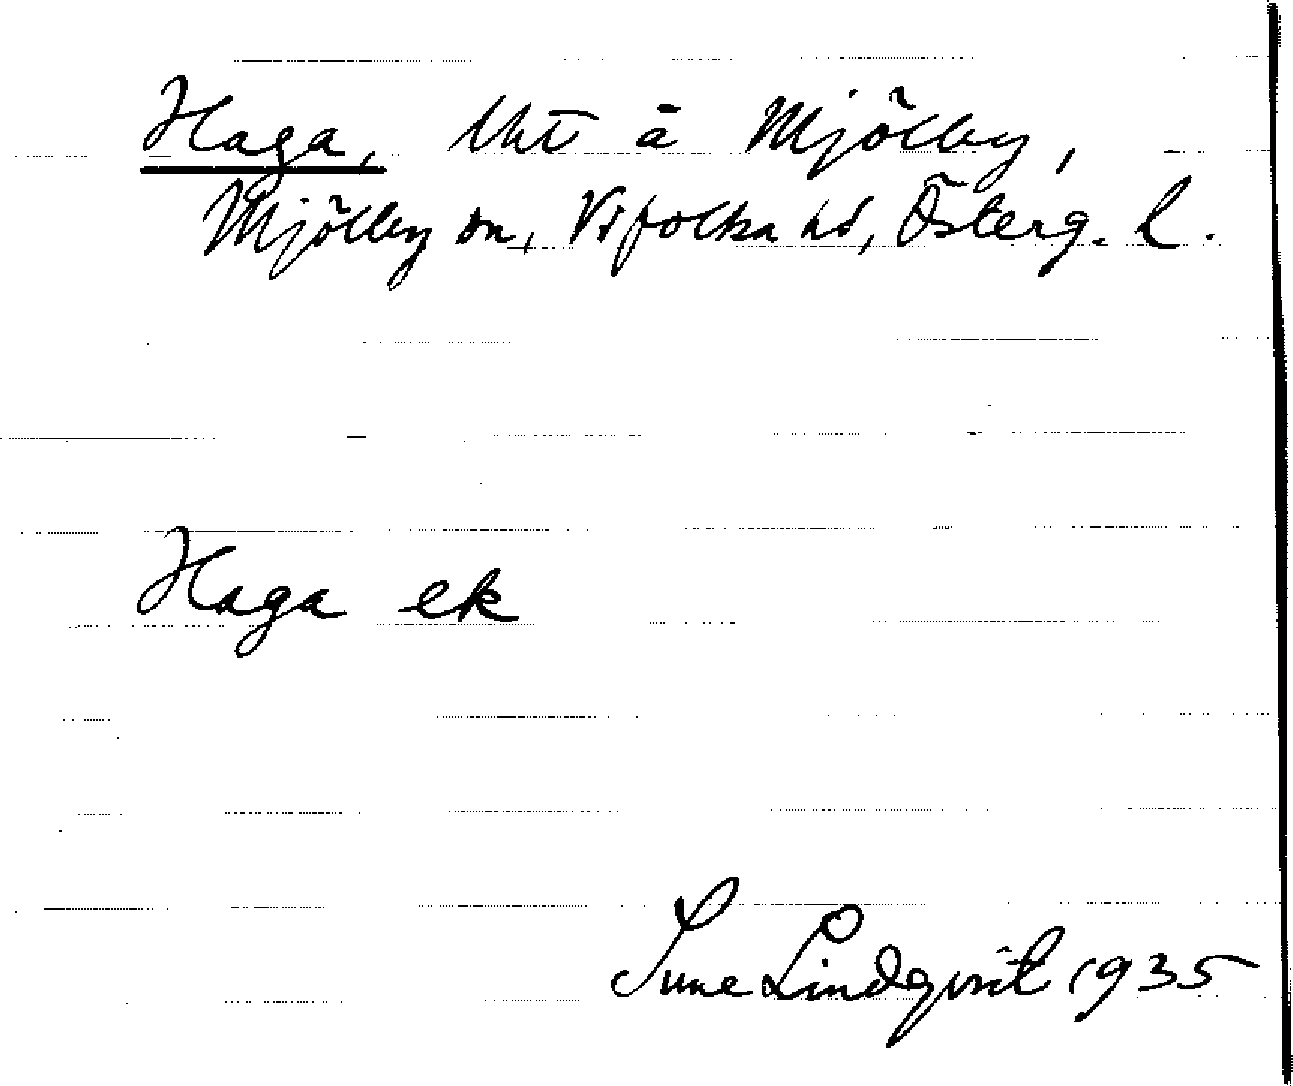 Haga, lht å Mjölby,
Mjölby sn, Vifolka hd, Österg. l.
Haga ek
Sune Lindqvist 1935